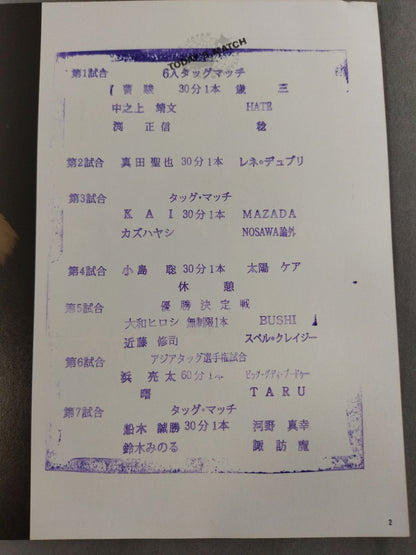 TODAY'S MATCH
第1試合 6人タッグマッチ
30分1本
中之上 靖文 HATE
渕 正信 稔
第2試合 真田聖也 30分1本 レネ・デュプリ
第3試合 タッグ・マッチ
KAI 30分1本 MAZADA
カズハヤシ NOSAWA論外
第4試合 小島 聡 30分1本 太陽 ケア
休 憩
第5試合 優勝決定戦
大和ヒロシ 無制限1本 BUSHI
近藤 修司 スペル・クレイジー
第6試合 アジアタッグ選手権試合
浜 亮太 60分1本 ビッグ・ダディ・ブードゥー
曙 TARU
第7試合 タッグ・マッチ
船木 誠勝 30分1本 河野 真幸
鈴木みのる 諏訪魔
2